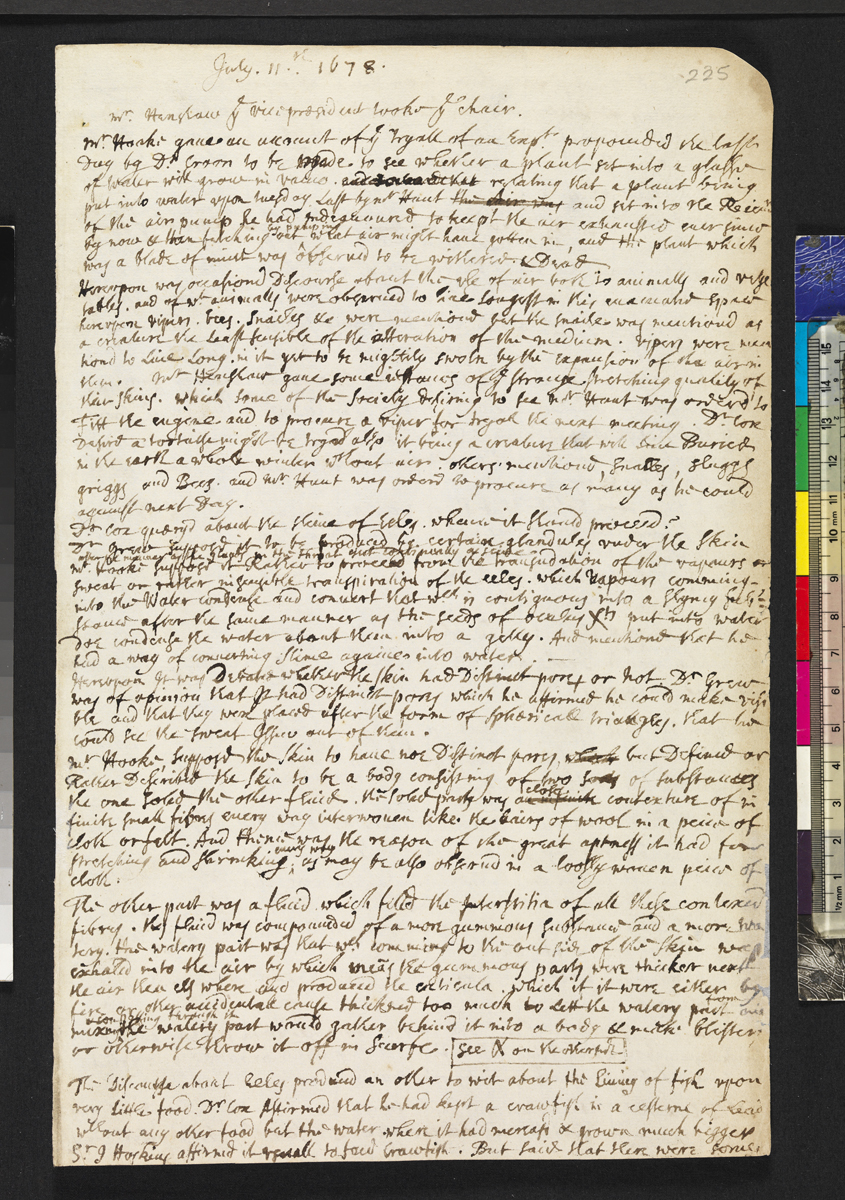 July. 11.th 1678.
225
Mr. Henshaw ye vice president tooke ye chair.
Mr. Hooke gave an account of ye tryall of an Expt. propounded the last
Day by Dr Croon to be made to see whether a plant set into a glasse
of water will grow in vacuo. relating that a plant being
put into water upon tuesday Last by mr Hunt the air was and set into the Recivr
of the air pump he had indeavoured to keep the air exhausted ever since
by now & then fetching out by pumping what air might have gotten in, and the plant which
was a blade of mint was observed to be withered & Dead
Hereupon was occasiond Discourse about the use of air both to animalls and vege
tables. and of wt animalls were observed to live longest in this evacuated space
hereupon vipers. Bees. Snailes &c were mentiond but the snaile was mentiond as
a creature the Least sensible of the alteration of the medium. vipers were men
tiond to Live Long in it yet to be mightily swoln by the expansion of the air in
them. Mr Henshaw gave some instances of ye strange stretching quality of
their skins. which some of the Society Desiring to see mr Hunt was orderd to
fitt the engine and to procure a viper for tryall the next meeting. Dr. Cox
Desird a tortoise might be tryd also it being a creature that will live Buried
in the earth a whole winter without air. others mentiond, Snailes, sluggs
griggs and Bees. and mr Hunt was orderd to procure as many as he could
against next Day.
Dr Cox queryd about the slime of Eeles. whence it should proceed?
Dr Grew supposd it to be produced by certain glandules under the skin
after the manner as in the throat
Mr. Hooke supposd it Rather to proceed from the transudation of the vapours or
sweat or rather insensible transpiration of the eeles. which vapours comming
into the water condense and convert that wch is contiguous into a slymy sub
stance after the same manner as the seeds of put into water
Doe condense the water about them into a gelly. And mentiond that he
had a way of converting slime againe into water.
Hereupon It was Debated whether the skin had Distinct pores or not. Dr. Grew
was of opinion that It had Distinct pores which he affirmed he could make visi
ble and that they were placed after the form of sphericall triangles. that he
could see the sweat Issue out of them.
Mr. Hooke, supposd the skin to have noe Distinct pores, but Defined or
Rather Described the skin to be a body consisting of two of substances
the one solid the other fluid. the solid part was close an infinite contexture of in
finite small fibres every way interwoven like the hairs of wool in a peice of
cloth or felt. And thence was the reason of the great aptness it had for
stretching and shrinking, every way as may be also observd in a loosly woven peice of
cloth.
The other part was a fluid which filld the Interstitia of all these contexed
fibres. this fluid was compounded of a more gummous substance and a more wa
tery. the watery part was that wch comming to the out side of the skin was
exhaled into the air by which means the gummous parts were thicker next
the air then els where and produced the cuticula. which if it were either by
fire or other accidentall cause thickned too much to lett the watery part
through it the watery part would gather behind it into a body & make blisters
or otherwise throw it off in Scurfe. see X on the other side
The Discourse about Eeles producd an other to wit about the living of fish upon
very little food. Dr. Cox Affirmed that he had kept a crawfish in a cesterne of lead
without any other food but the water where it had increast & grown much bigger
Sr J Hoskins affirmd it usuall to feed Crawfish. But said that there were some